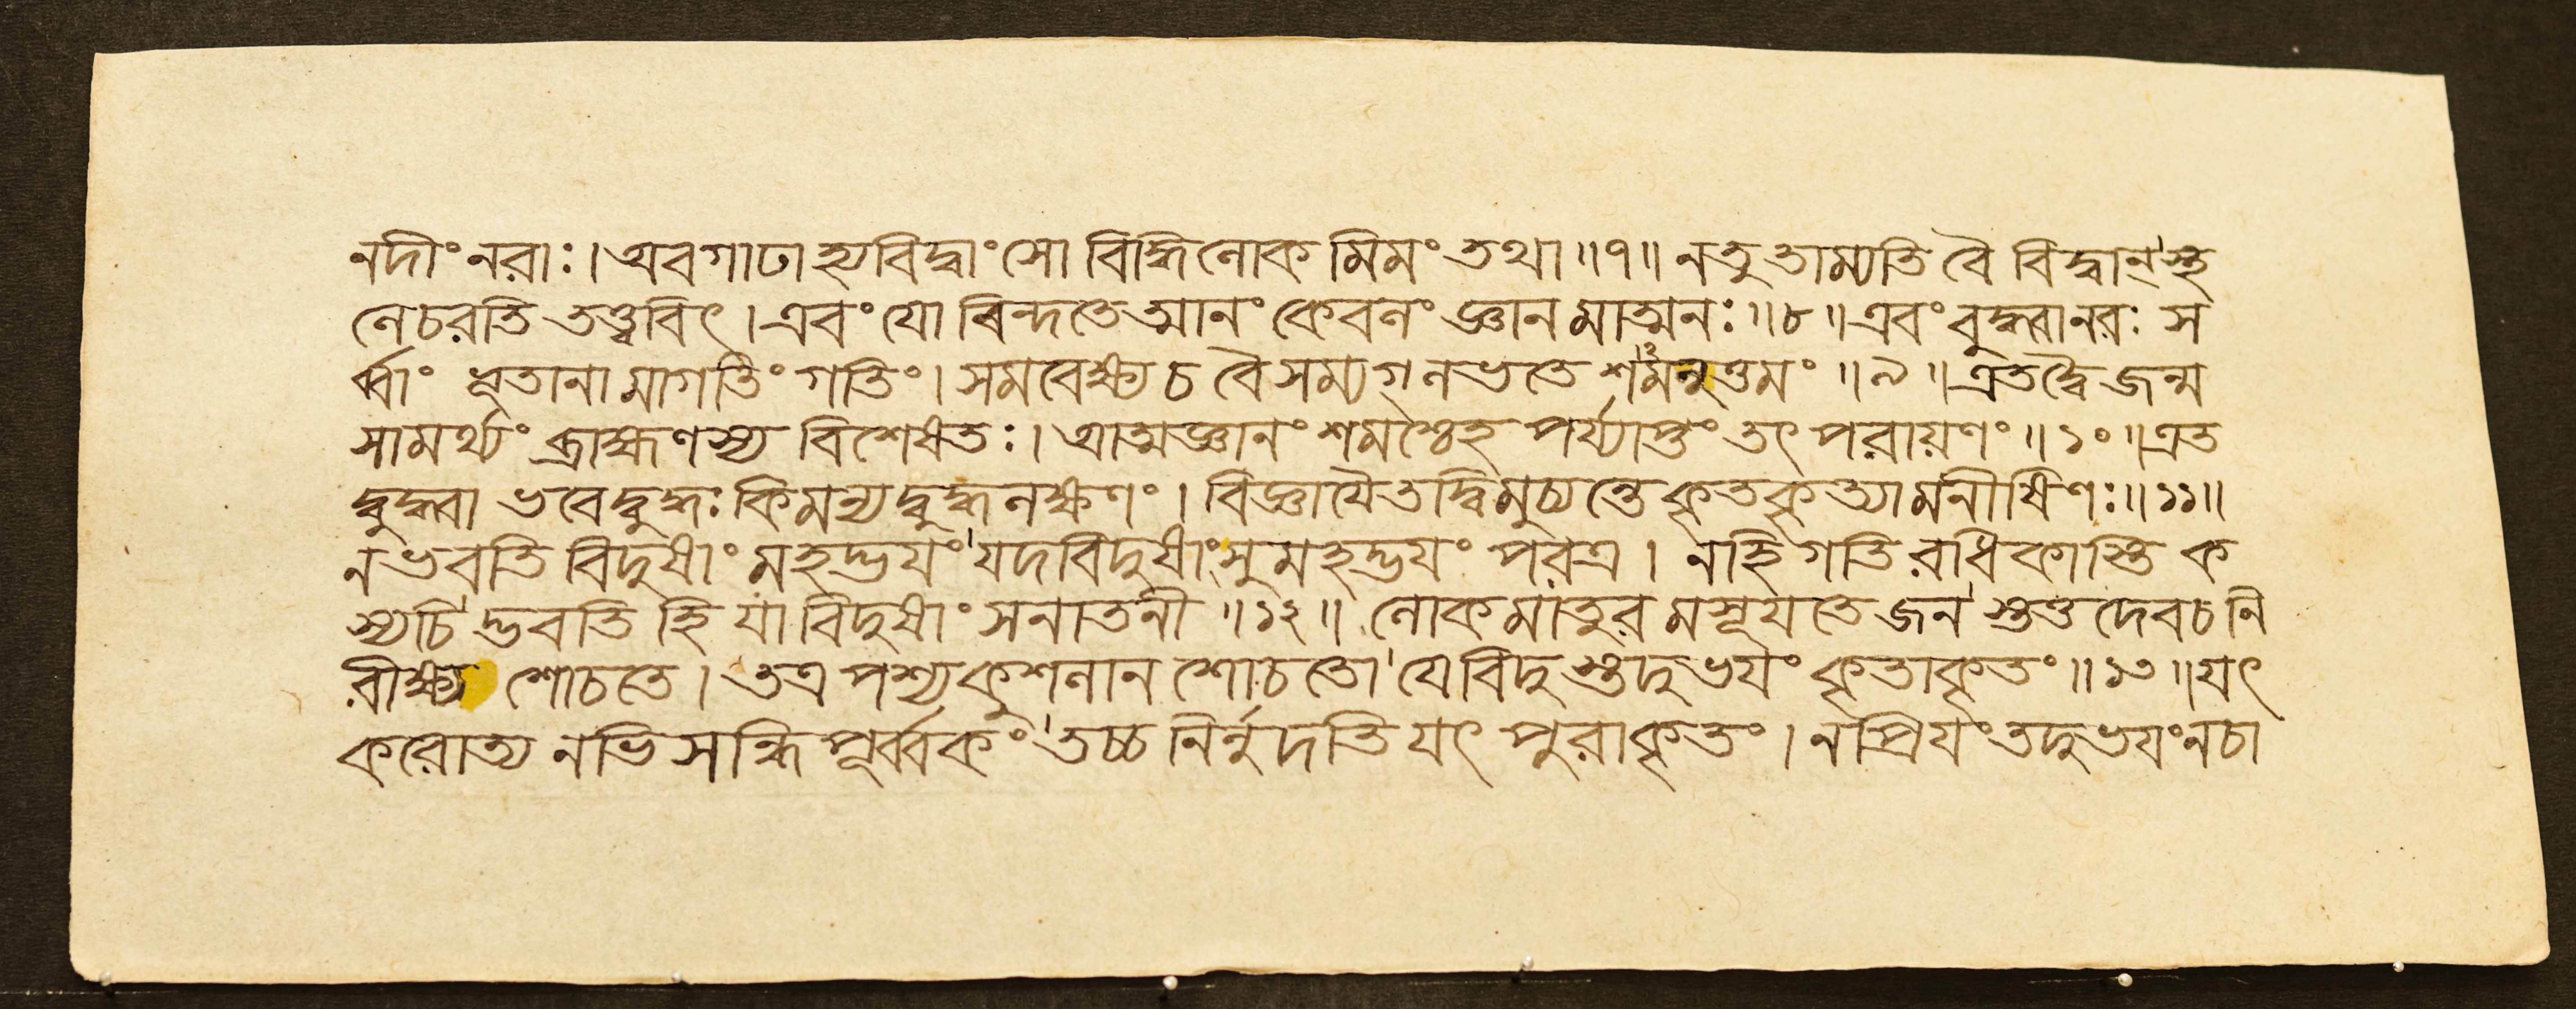 নদীং নরাঃ। অবগাঢাহ্যবিদ্বাংসো বিদ্ধিলোক মিমং তথা॥৭॥ নতু তাম্যতি বৈ বিদ্বান্স্থ
লেচরতি তত্ত্ববিৎ। এবং যো বিন্দতেত্মানং কেবলং জ্ঞানমাত্মনঃ॥৮॥ এবং বুদ্ধ্বানরঃ স
র্ব্বাং ভূতানামাগতিং গতিং। সমবেক্ষ্য চ বৈ সম্যগ্ লভতে শমনুত্তমং॥৯॥ এতদ্বৈ জন্ম
সামর্থ্যং ব্রাহ্মণস্য বিশেষতঃ। আত্মজ্ঞানং শমশ্চৈহ পর্য্যাপ্তং তৎ পরায়ণং॥১০॥ এত
দ্বুদ্ধ্বা ভবেদ্বুদ্ধঃ কিমন্যদ্বুদ্ধলক্ষণং। বিজ্ঞায়ৈতদ্বিমুচ্যন্তে কৃতকৃত্যামনীষিণঃ॥১১॥
নভবতি বিদুষাং মহদ্ভয়ং যদবিদুষাং সুমহদ্ভয়ং পরত্র। নহি গতি রধিকাস্তি ক
স্যচি দ্ভবতি হি যা বিদুষাং সনাতনী॥১২॥ লোকমাতুর মসূয়তে জন স্তত্ত দেবচ নি
রীক্ষ্য শোচতে। তত্র পশ্য কুশলান শোচতো যে বিদু স্তদুভয়ং কৃতাকৃতং॥১৩॥ যৎ
করোত্য নভিসন্ধি পূর্ব্বকং তচ্চ নির্নুদতি যৎ পুরাকৃতং। নপ্রিয়ং তদুভয়ং নচা